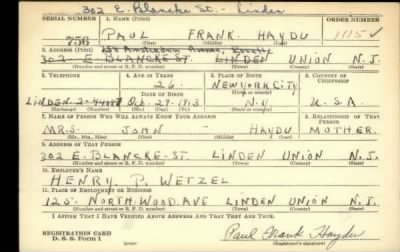 302 E. Blancke St. - Linden
SERIAL NUMBER 1. NAME (Print) ORDER NUMBER
756 PAUL FRANK HAYDU 1115
(First) (Middle) (Last)
2. ADDRESS (Print)
302 E BLANCKE ST. LINDEN UNION N.J.
(Number and street or R. F. D. number) (Town) (County) (State)
3. TELEPHONE 4. AGE IN YEARS 5. PLACE OF BIRTH 6. COUNTRY OF CITIZENSHIP
26 NEW YORK CITY
DATE OF BIRTH (Town or county)
LINDEN Oct. 29. 1913 N.Y. U.S.A.
(Exchange) (Number) (Mo.) (Day) (Yr.) (State or country)
7. NAME OF PERSON WHO WILL ALWAYS KNOW YOUR ADDRESS 8. RELATIONSHIP OF THAT PERSON
MRS. JOHN HAYDU MOTHER.
(Mr., Mrs., Miss) (First) (Middle) (Last)
9. ADDRESS OF THAT PERSON
302 E. BLANCKE ST. LINDEN UNION N.J.
(Number and street or R. F. D. number) (Town) (County) (State)
10. EMPLOYER'S NAME
HENRY P. WETZEL
11. PLACE OF EMPLOYMENT OR BUSINESS
125 NORTH WOOD AVE LINDEN UNION N.J.
(Number and street or R. F. D. number) (Town) (County) (State)
I AFFIRM THAT I HAVE VERIFIED ABOVE ANSWERS AND THAT THEY ARE TRUE.
REGISTRATION CARD
D. S. S. Form 1
Paul Frank Haydu
(Registrant's signature)